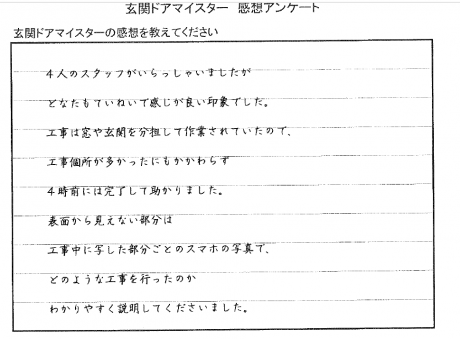 玄関ドアマイスター 感想アンケート
玄関ドアマイスターの感想を教えてください
4人のスタッフがいらっしゃいましたが
どなたもていねいで感じが良い印象でした。
工事は窓や玄関を分担して作業されていたので、
工事個所が多かったにもかかわらず
4時前には完了して助かりました。
表面から見えない部分は
工事中に写した部分ごとのスマホの写真で、
どのような工事を行ったのか
わかりやすく説明してくださいました。